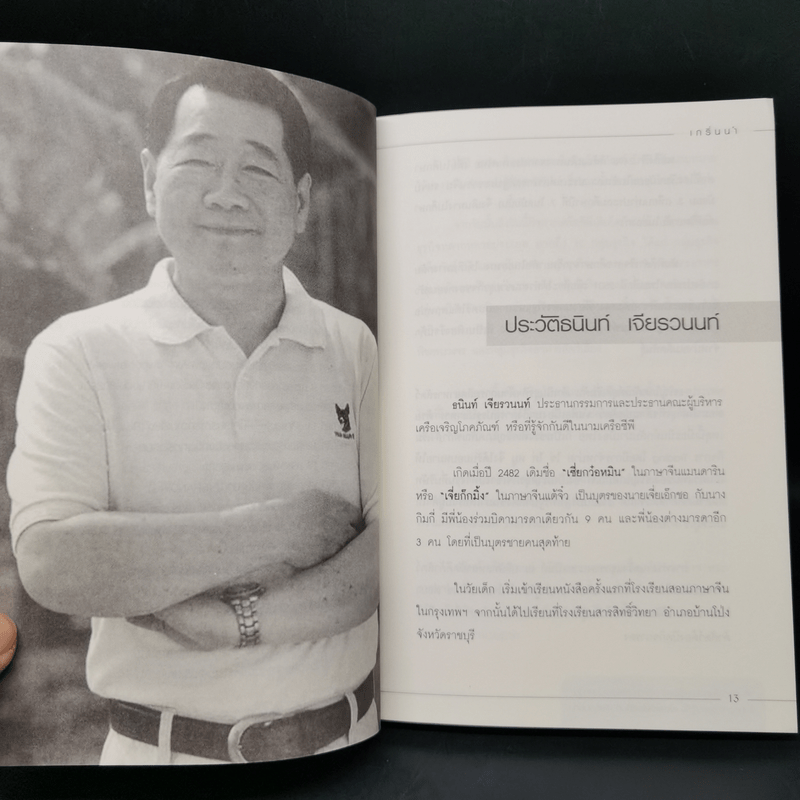 เกริ่นนำ
ประวัติธนินท์ เจียรวนนท์
ธนินท์ เจียรวนนท์ ประธานกรรมการและประธานคณะผู้บริหาร
เครือเจริญโภคภัณฑ์ หรือที่รู้จักกันดีในนามเครือซีพี
เกิดเมื่อปี 2482 เดิมชื่อ "เซี่ยกว๋อหมิน" ในภาษาจีนแมนดาริน
หรือ "เจี่ยก๊กมิ้ง" ในภาษาจีนแต้จิ๋ว เป็นบุตรของนายเจี่ยเอ็กชอ กับนาง
กิมกี่ มีพี่น้องร่วมบิดามารดาเดียวกัน 9 คน และพี่น้องต่างมารดาอีก
3 คน โดยที่เป็นบุตรชายคนสุดท้าย
ในวัยเด็ก เริ่มเข้าเรียนหนังสือครั้งแรกที่โรงเรียนสอนภาษาจีน
ในกรุงเทพฯ จากนั้นได้ไปเรียนที่โรงเรียนสารสิทธิ์วิทยา อำเภอบ้านโป่ง
จังหวัดราชบุรี
13